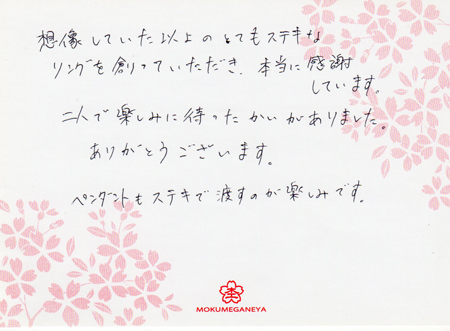 想像していた以上のとてもステキな
リングを創っていただき、本当に感謝
しています。
二人で楽しみに待ったかいがありました。
ありがとうございます。
ペンダントもステキで渡すのが楽しみです。
MOKUMEGANEYA